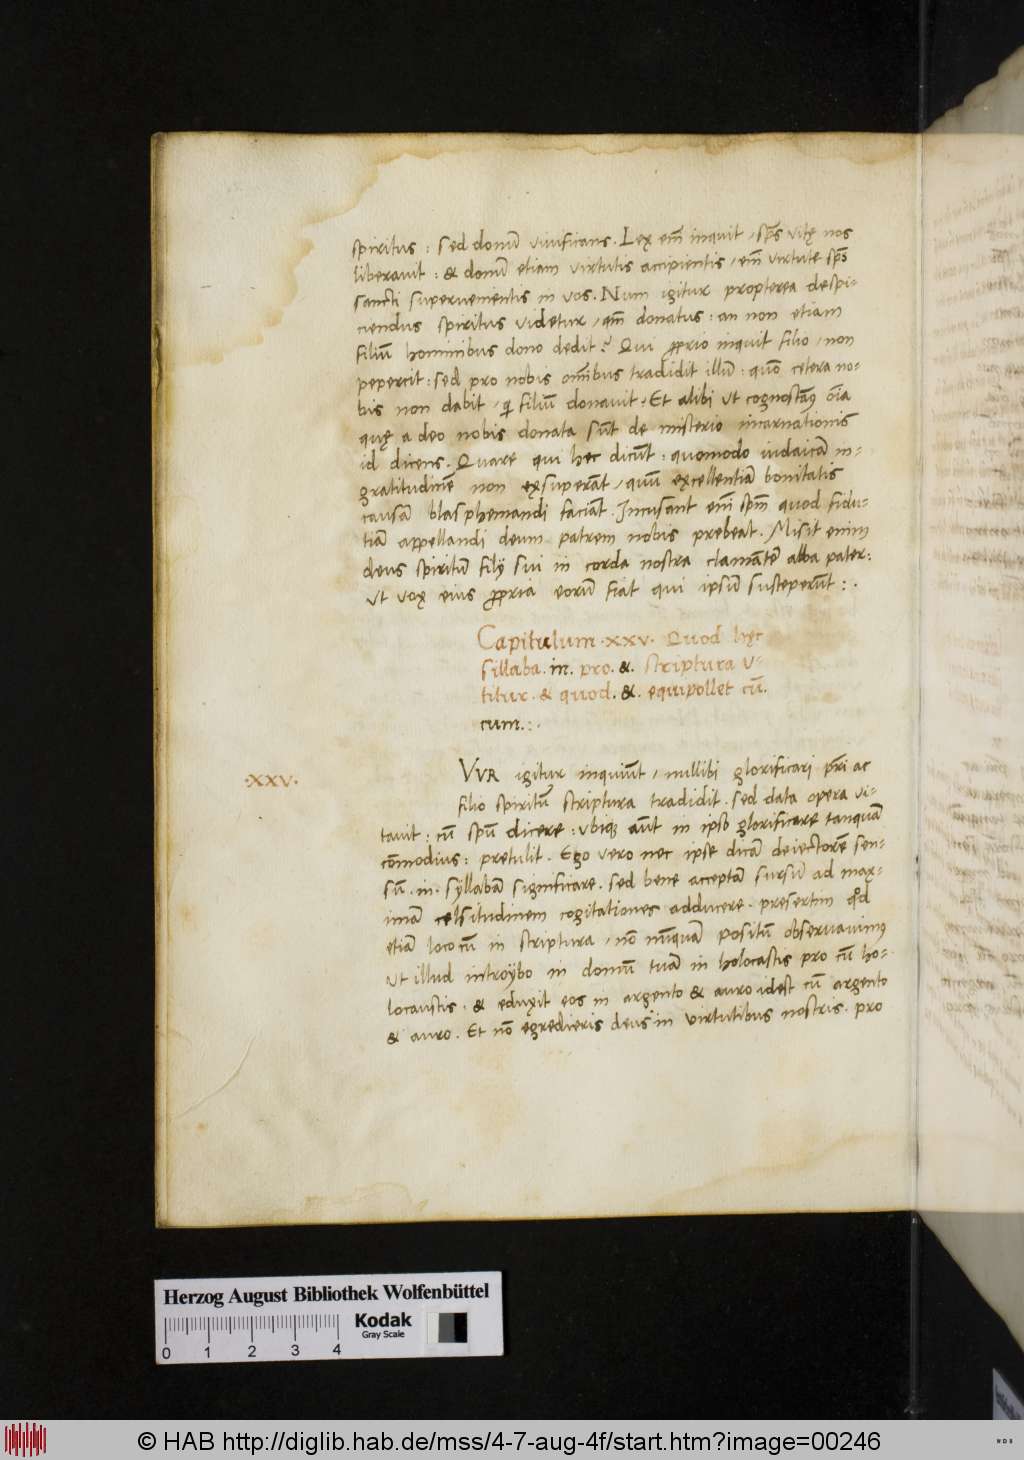 spiritus : sed donū viuificans . Lex em̄ inquit / sp̄s vitę nos
liberauit : & donū etiam virtutis accipientis / em̄ virtute sp̄s
sancti superuenientis in vos . Num igitur propterea despi-
ciendus spiritus videtur / qm̄ donatus : an non etiam
filiū hominibus dono dedit ? Qui proprio inquit filio / non
pepercit : sed pro nobis om̄ibus tradidit illū : quō cetera no-
bis non dabit / qi filiū donauit / Et alibi ut cognoscamꝰ oīa
quę a deo nobis donata sūt de misterio incarnationis
id dicens . Quare qui hec dicūt : quomodo iudaicā in-
gratitudinē non exsuperāt / quū excellentiā bonitatis
causā blasphemandi faciāt . Incusant eni spm̄ quod fidu-
tiā appellandi deum patrem nobis prebeat . Misit enim
deus spiritū filij sui in corda nostra clamātē abba pater :
ut vox eius propria eorū fiat qui ipsū susceperūt : .
Capitulum .xxv. Quod hęc
sillaba . in . pro . & . scriptura u-
titur . & quod . & . equipollet cū .
cum . : .
.XXV.
VVR igitur inquiūt / nullibi glorificari pr̄i ac
filio spiritū scriptura tradidit . sed data opera vi-
tauit : cū spū dicere : ubiqꝫ aūt in ipso glorificare tanquā
cōmodius : pretulit . Ego vero nec ipse dicā deiectorē sen-
sū . in . syllabā significare . sed bene acceptā sursū ad max-
imā celsitudinem cogitationes adducere . presertim qd̄
etiā loco cū in scriptura / nō nūquā positū obseruauimꝰ
ut illud introybo in domū tuā in holocastis pro cū ho-
locaustis . & eduxit eos in argento & auro idest cū argento
& auro . Et nō egredieris deus in virtutibus nostris . pro
Herzog August Bibliothek Wolfenbüttel
0 1 2 3 4
Kodak
Gray Scale
© HAB http://diglib.hab.de/mss/4-7-aug-4f/start.htm?image=00246